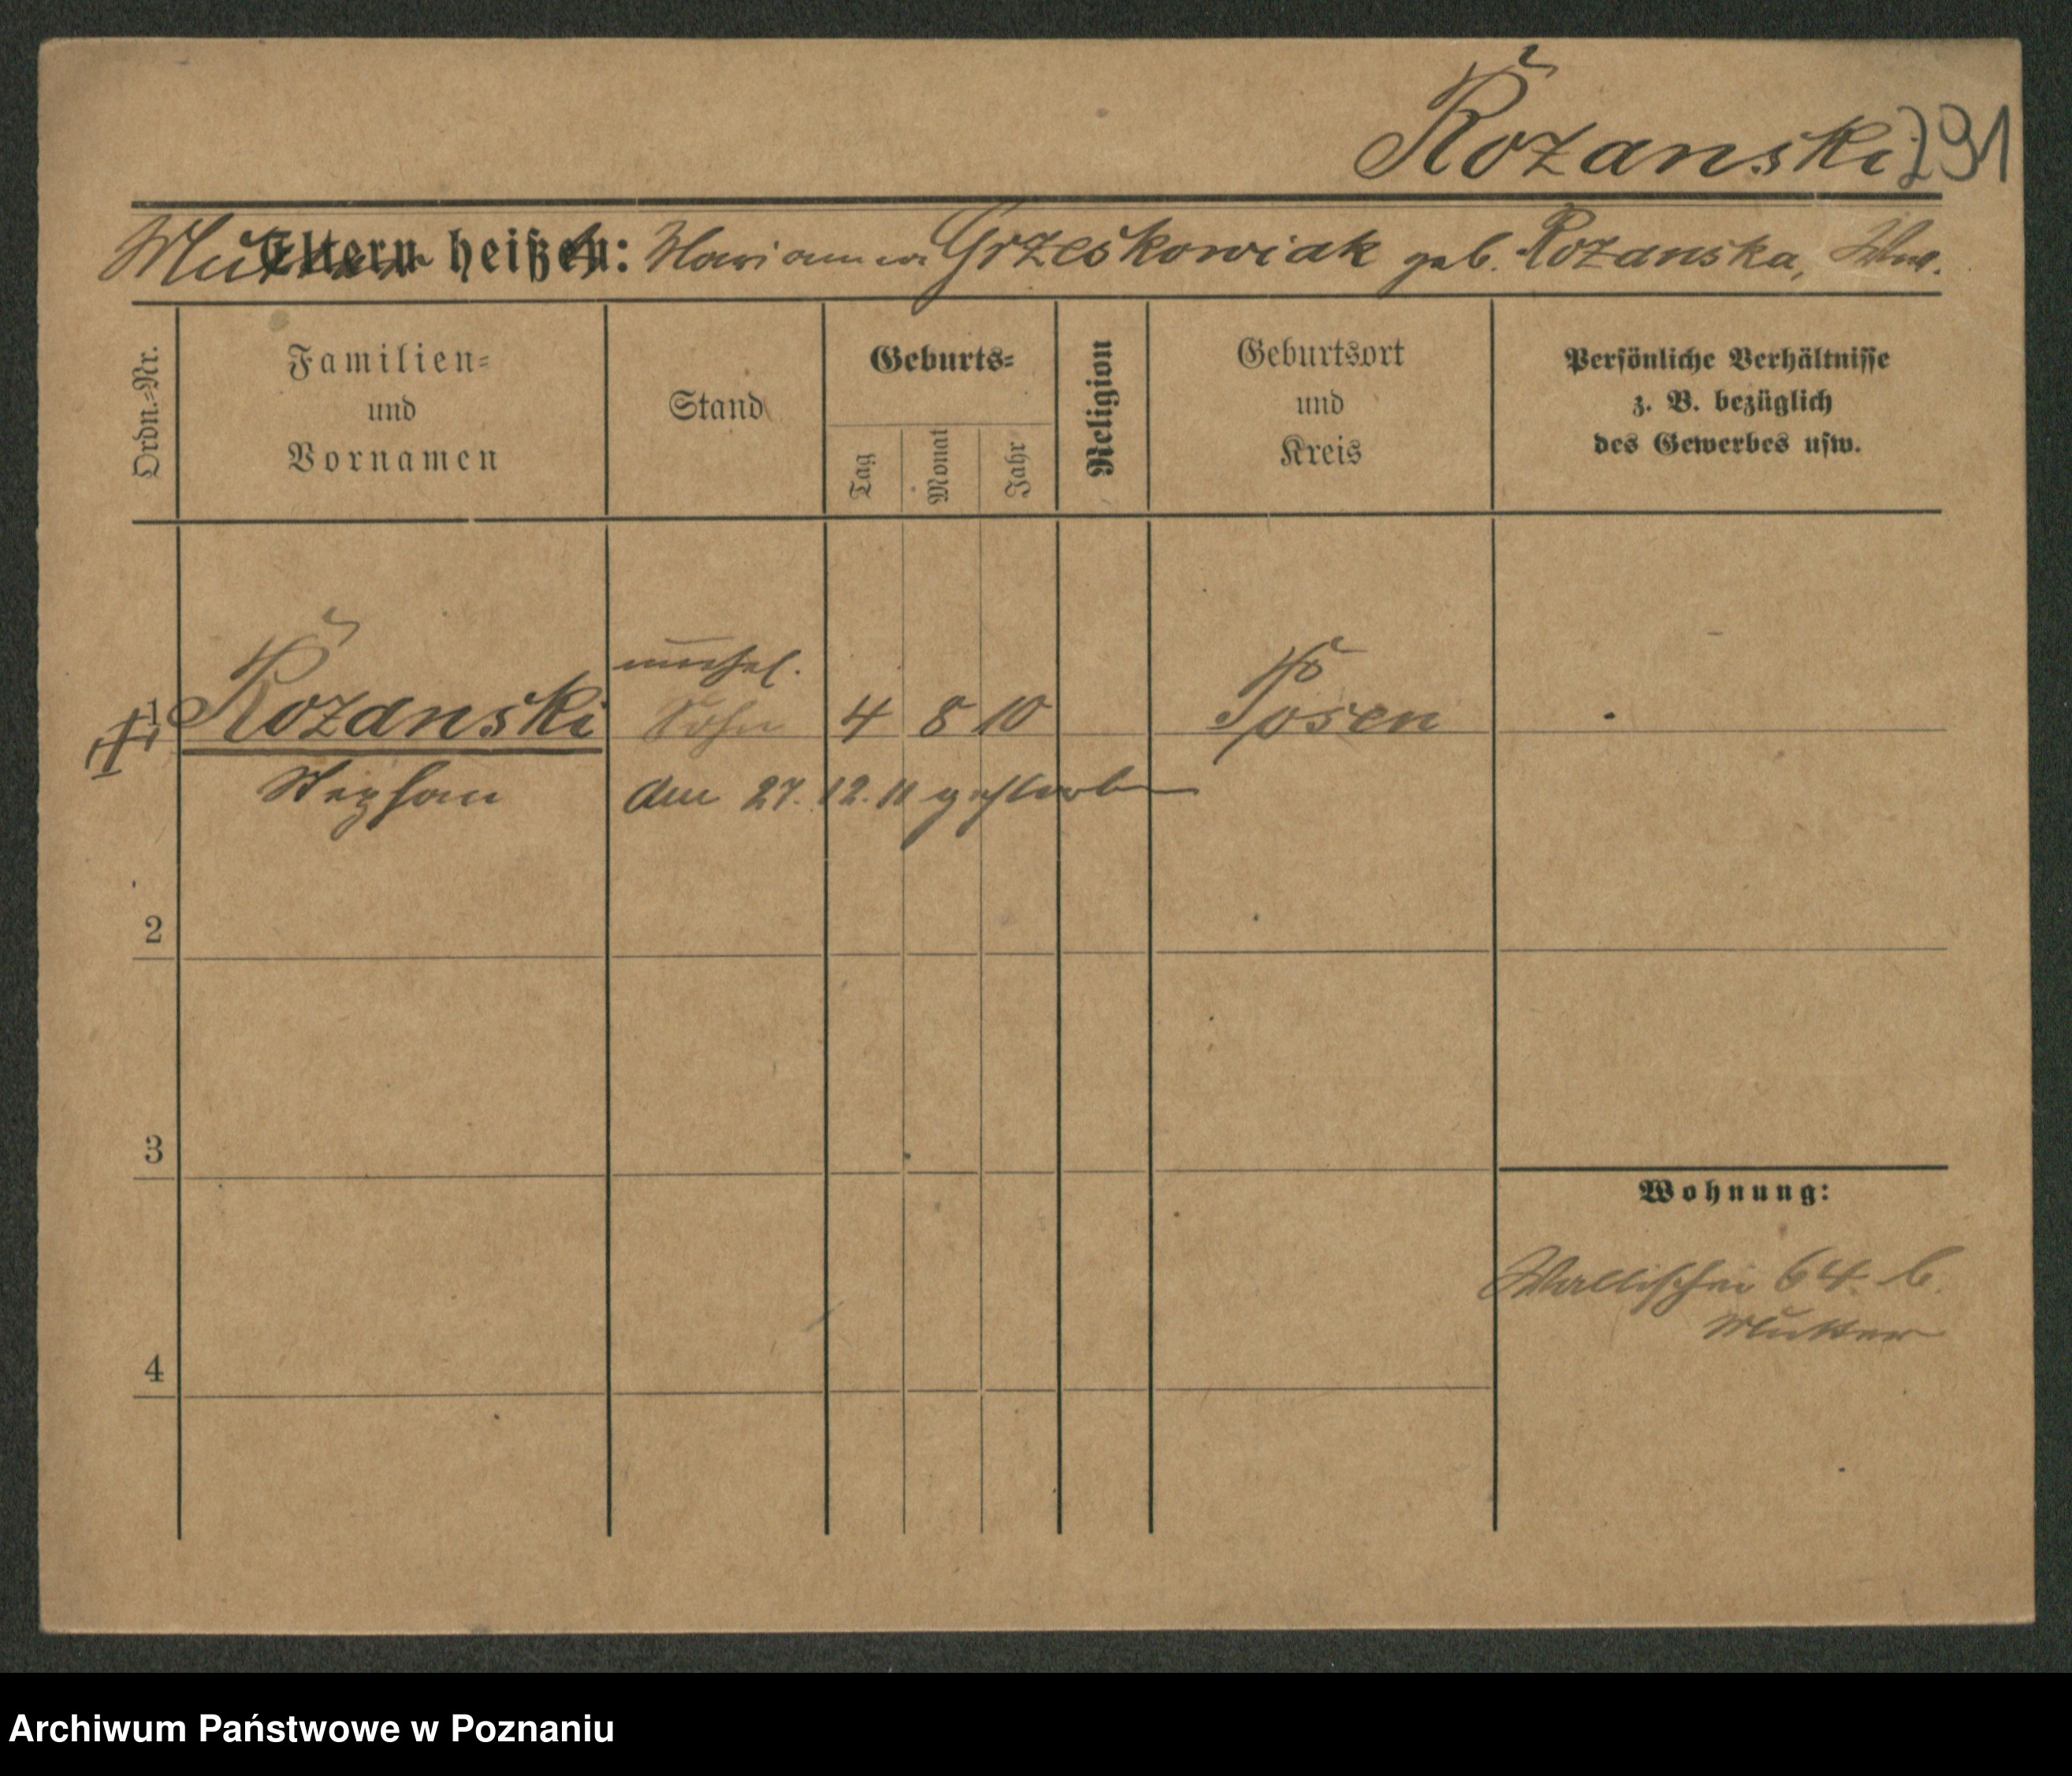 Rożanski 291
Mutter Eltern heißen: Marianna Grzeskowiak geb. Rożanska, Wwe.
Ordn.-Nr.
Familien-
und
Vornamen
Stand
Geburts-
Tag
Monat
Jahr
Religion
Geburtsort
und
Kreis
Persönliche Verhältnisse
z. B. bezüglich
des Gewerbes usw.
unehel.
1 Rożanski Sohn 4 8 10 Posen
Stephan den 27. 12. 11 gestorben
2
3
Wohnung:
Wallischei 64. b.
Mutter
4
Archiwum Państwowe w Poznaniu